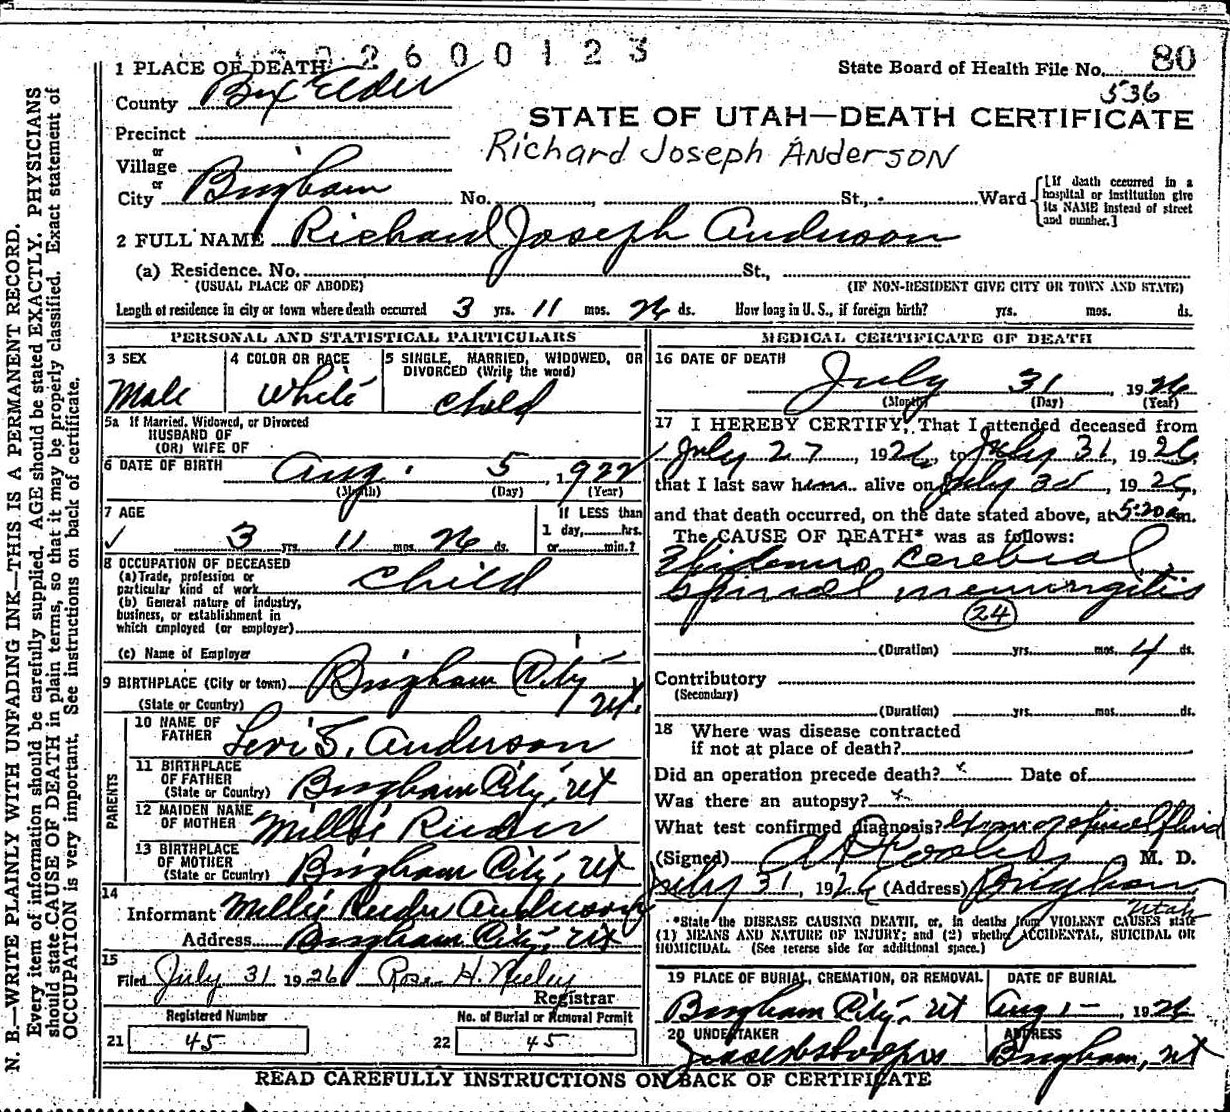 2600123
80
1 PLACE OF DEATH
State Board of Health File No.
536
County Box Elder
STATE OF UTAH—DEATH CERTIFICATE
Precinct
or
Village
Richard Joseph Anderson
or
City Brigham No. St., Ward
[If death occurred in a hospital or institution give its NAME instead of street and number.]
2 FULL NAME Richard Joseph Anderson
(a) Residence. No. St.,
(USUAL PLACE OF ABODE) (IF NON-RESIDENT GIVE CITY OR TOWN AND STATE)
Length of residence in city or town where death occurred 3 yrs. 11 mos. 26 ds. How long in U. S., if foreign birth? yrs. mos. ds.
PERSONAL AND STATISTICAL PARTICULARS
3 SEX
Male
4 COLOR OR RACE
White
5 SINGLE, MARRIED, WIDOWED, OR
DIVORCED (Write the word)
Child
5a If Married, Widowed, or Divorced
HUSBAND OF
(OR) WIFE OF
6 DATE OF BIRTH Aug. 5 1922
(Month) (Day) (Year)
7 AGE
3 yrs. 11 mos. 26 ds.
If LESS than
1 day, hrs.
or min.?
8 OCCUPATION OF DECEASED
(a) Trade, profession or
particular kind of work Child
(b) General nature of industry,
business, or establishment in
which employed (or employer)
(c) Name of Employer
9 BIRTHPLACE (City or town) Brigham City
(State or Country) Ut.
PARENTS
10 NAME OF
FATHER Levi S. Anderson
11 BIRTHPLACE
OF FATHER
(State or Country) Brigham City, Ut
12 MAIDEN NAME
OF MOTHER Millie Reeder
13 BIRTHPLACE
OF MOTHER
(State or Country) Brigham City, Ut
14
Informant Millie Reeder Anderson
Address Brigham City, Ut
15
Filed July 31 1926 Rose H. Neeley
Registrar
Registered Number No. of Burial or Removal Permit
21 45 22 45
MEDICAL CERTIFICATE OF DEATH
16 DATE OF DEATH
July 31, 1926
(Month) (Day) (Year)
17 I HEREBY CERTIFY, That I attended deceased from
July 27, 1926, to July 31, 1926,
that I last saw him alive on July 30, 1926,
and that death occurred, on the date stated above, at 5:20 a m.
The CAUSE OF DEATH* was as follows:
cerebral
Spinal meningitis
24
(Duration) yrs. mos. 4 ds.
Contributory
(Secondary)
(Duration) yrs. mos. ds.
18 Where was disease contracted
if not at place of death?
Did an operation precede death? x Date of
Was there an autopsy? x
What test confirmed diagnosis? spinal fluid
(Signed) M. D.
July 31, 1926 (Address) Brigham
Utah
*State the DISEASE CAUSING DEATH, or, in deaths from VIOLENT CAUSES state
(1) MEANS AND NATURE OF INJURY; and (2) whether ACCIDENTAL, SUICIDAL OR
HOMICIDAL. (See reverse side for additional space.)
19 PLACE OF BURIAL, CREMATION, OR REMOVAL
Brigham City, Ut
DATE OF BURIAL
Aug 1— 1926
20 UNDERTAKER
ADDRESS
Brigham, Ut
READ CAREFULLY INSTRUCTIONS ON BACK OF CERTIFICATE
N. B.—WRITE PLAINLY WITH UNFADING INK—THIS IS A PERMANENT RECORD.
Every item of information should be carefully supplied. AGE should be stated EXACTLY. PHYSICIANS
should state CAUSE OF DEATH in plain terms, so that it may be properly classified. Exact statement of
OCCUPATION is very important. See instructions on back of certificate.